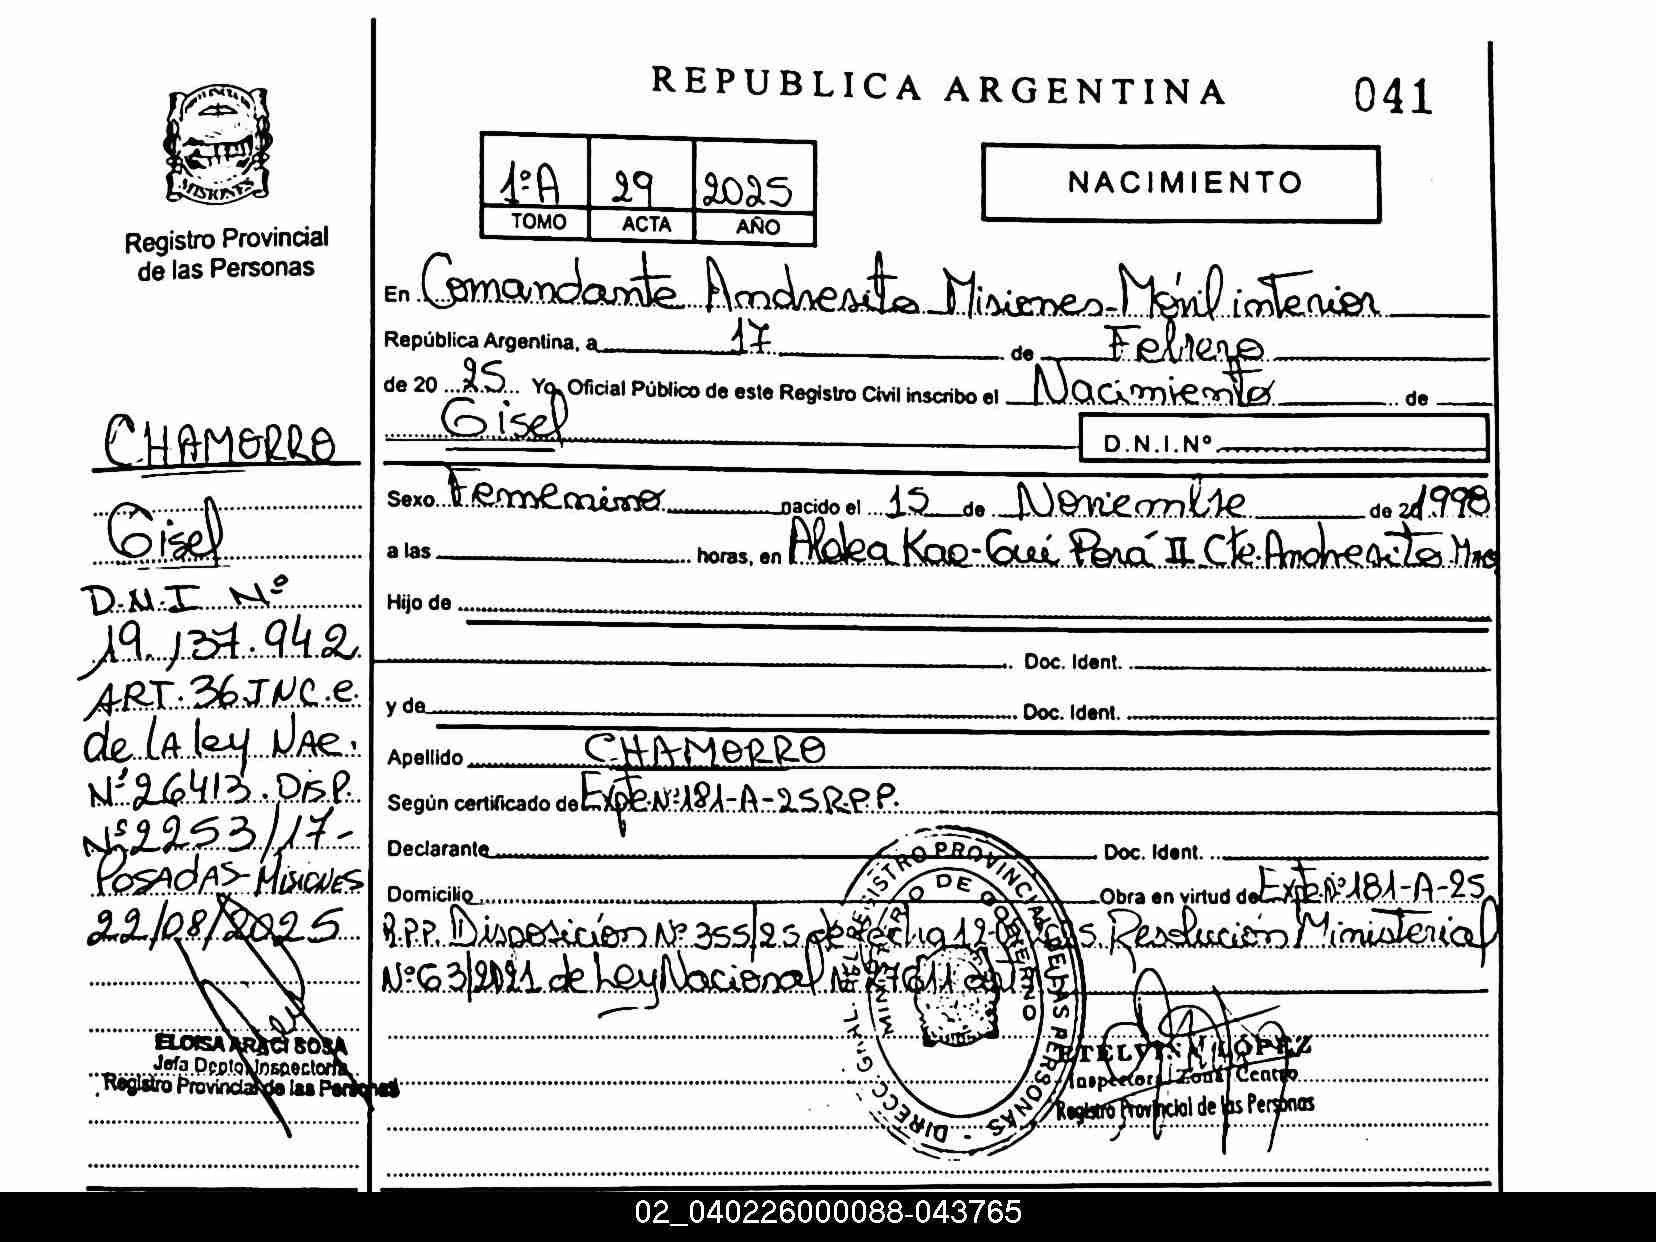 REPUBLICA ARGENTINA
041
MISIONES
Registro Provincial
de las Personas
1ºA 29 2025
TOMO ACTA AÑO
NACIMIENTO
En Comandante Andresito Misiones-Móvil interior
República Argentina, a 17 de Febrero
de 20 25 Yo, Oficial Público de este Registro Civil inscribo el Nacimiento de
Gisel
D.N.I.Nº
Sexo Femenino nacido el 15 de Noviembre de 20 1998
a las horas, en Aldea Kao-Guí Porá II Cte. Andresito Mnes
Hijo de
Doc. Ident.
y de Doc. Ident.
Apellido CHAMORRO
Según certificado de Expte Nº181-A-25 R.P.P.
Declarante Doc. Ident.
Domicilio Obra en virtud de Expte Nº181-A-25
R.P.P. Disposición Nº 355/25 de fecha 12- Resolución Ministerial
Nº63/2021 de Ley Nacional Nº27611
CHAMORRO
Gisel
D.N.I Nº
19.137.942
ART. 36 INC.e
de LA ley NAC.
Nº26413. DISP.
Nº2253/17-
POSADAS-MISIONES
22/08/2025
ELOISA ARACI SOSA
Jefa Depto. Inspectoría
Registro Provincial de las Personas
DIRECC. GRAL. DEL REGISTRO PROVINCIAL DE LAS PERSONAS
MINISTERIO DE GOBIERNO
ETELVINA LÓPEZ
Inspectora Zona Centro
Registro Provincial de las Personas
02_040226000088-043765